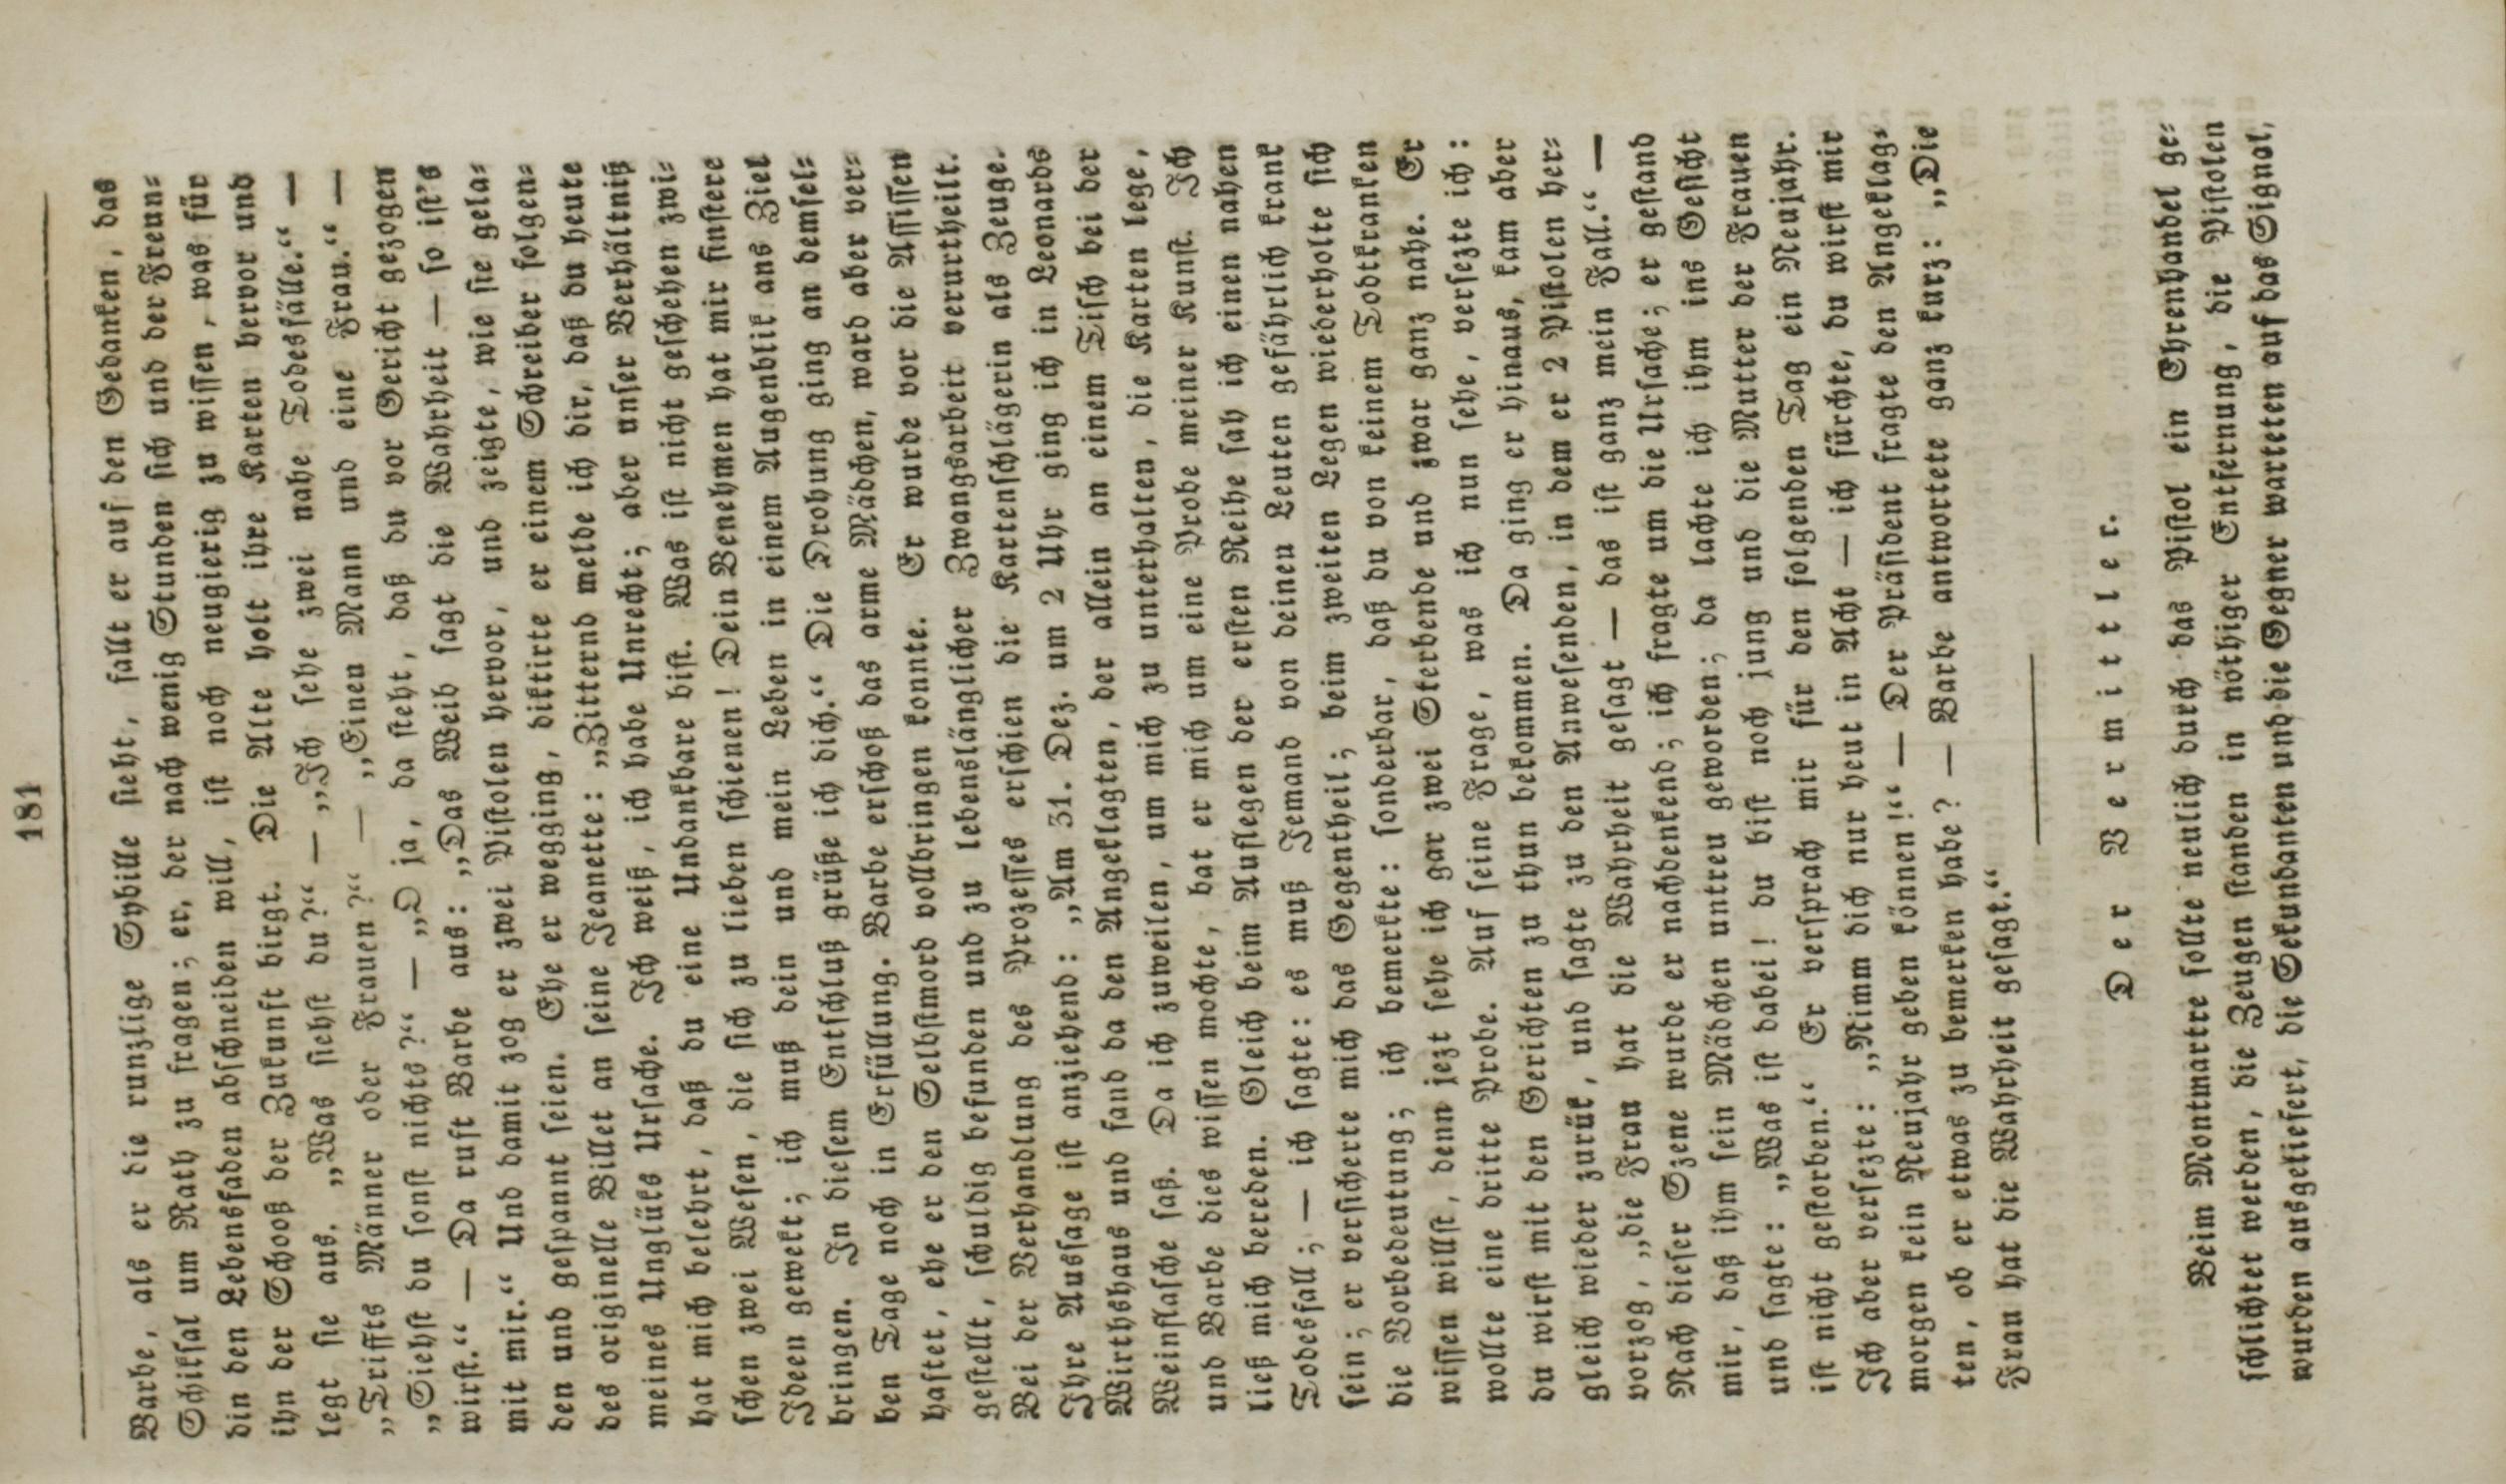 181
Barbe, als er die runzlige Sybille sieht, fällt er auf den Gedanken, das
Schiksal um Rath zu fragen; er, der nach wenig Stunden sich und der Freun-
din den Lebensfaden abschneiden will, ist noch neugierig zu wissen, was für
ihn der Schooß der Zukunft birgt. Die Alte holt ihre Karten hervor und
legt sie aus. „Was siehst du?“ — „Ich sehe zwei nahe Todesfälle.“ —
„Triffts Männer oder Frauen?“ — „Einen Mann und eine Frau.“ —
„Siehst du sonst nichts?“ — „O ja, da steht, daß du vor Gericht gezogen
wirst.“ — Da ruft Barbe aus: „Das Weib sagt die Wahrheit — so ist's
mit mir.“ Und damit zog er zwei Pistolen hervor, und zeigte, wie sie gela-
den und gespannt seien. Ehe er wegging, diktirte er einem Schreiber folgen-
des originelle Billet an seine Jeanette: „Zitternd melde ich dir, daß du heute
meines Unglüks Ursache. Ich weiß, ich habe Unrecht; aber unser Verhältniß
hat mich belehrt, daß du eine Undankbare bist. Was ist nicht geschehen zwi-
schen zwei Wesen, die sich zu lieben schienen! Dein Benehmen hat mir finstere
Ideen gewekt; ich muß dein und mein Leben in einem Augenblik ans Ziel
bringen. In diesem Entschluß grüße ich dich.“ Die Drohung ging an demsel-
ben Tage noch in Erfüllung. Barbe erschoß das arme Mädchen, ward aber ver-
haftet, ehe er den Selbstmord vollbringen konnte. Er wurde vor die Assissen
gestellt, schuldig befunden und zu lebenslänglicher Zwangsarbeit verurtheilt.
Bei der Verhandlung des Prozesses erschien die Kartenschlägerin als Zeuge.
Ihre Aussage ist anziehend: „Am 31. Dez. um 2 Uhr ging ich in Leonards
Wirthshaus und fand da den Angeklagten, der allein an einem Tisch bei der
Weinflasche saß. Da ich zuweilen, um mich zu unterhalten, die Karten lege,
und Barbe dies wissen mochte, bat er mich um eine Probe meiner Kunst. Ich
ließ mich bereden. Gleich beim Auflegen der ersten Reihe sah ich einen nahen
Todesfall; — ich sagte: es muß Jemand von deinen Leuten gefährlich krank
sein; er versicherte mich das Gegentheil; beim zweiten Legen wiederholte sich
die Vorbedeutung; ich bemerkte: sonderbar, daß du von keinem Todtkranken
wissen willst, denn jezt sehe ich gar zwei Sterbende und zwar ganz nahe. Er
wollte eine dritte Probe. Auf seine Frage, was ich nun sehe, versezte ich:
du wirst mit den Gerichten zu thun bekommen. Da ging er hinaus, kam aber
gleich wieder zurük, und sagte zu den Anwesenden, in dem er 2 Pistolen her-
vorzog, „die Frau hat die Wahrheit gesagt — das ist ganz mein Fall.“ —
Nach dieser Szene wurde er nachdenkend; ich fragte um die Ursache; er gestand
mir, daß ihm sein Mädchen untreu geworden; da lachte ich ihm ins Gesicht
und sagte: „Was ist dabei! du bist noch jung und die Mutter der Frauen
ist nicht gestorben.“ Er versprach mir für den folgenden Tag ein Neujahr.
Ich aber versezte: „Nimm dich nur heut in Acht — ich fürchte, du wirst mir
morgen kein Neujahr geben können!“ — Der Präsident fragte den Angeklag-
ten, ob er etwas zu bemerken habe? — Barbe antwortete ganz kurz: „Die
Frau hat die Wahrheit gesagt.“
Der Vermittler.
Beim Montmartre sollte neulich durch das Pistol ein Ehrenhandel ge-
schlichtet werden, die Zeugen standen in nöthiger Entfernung, die Pistolen
wurden ausgeliefert, die Sekundanten und die Gegner warteten auf das Signal,